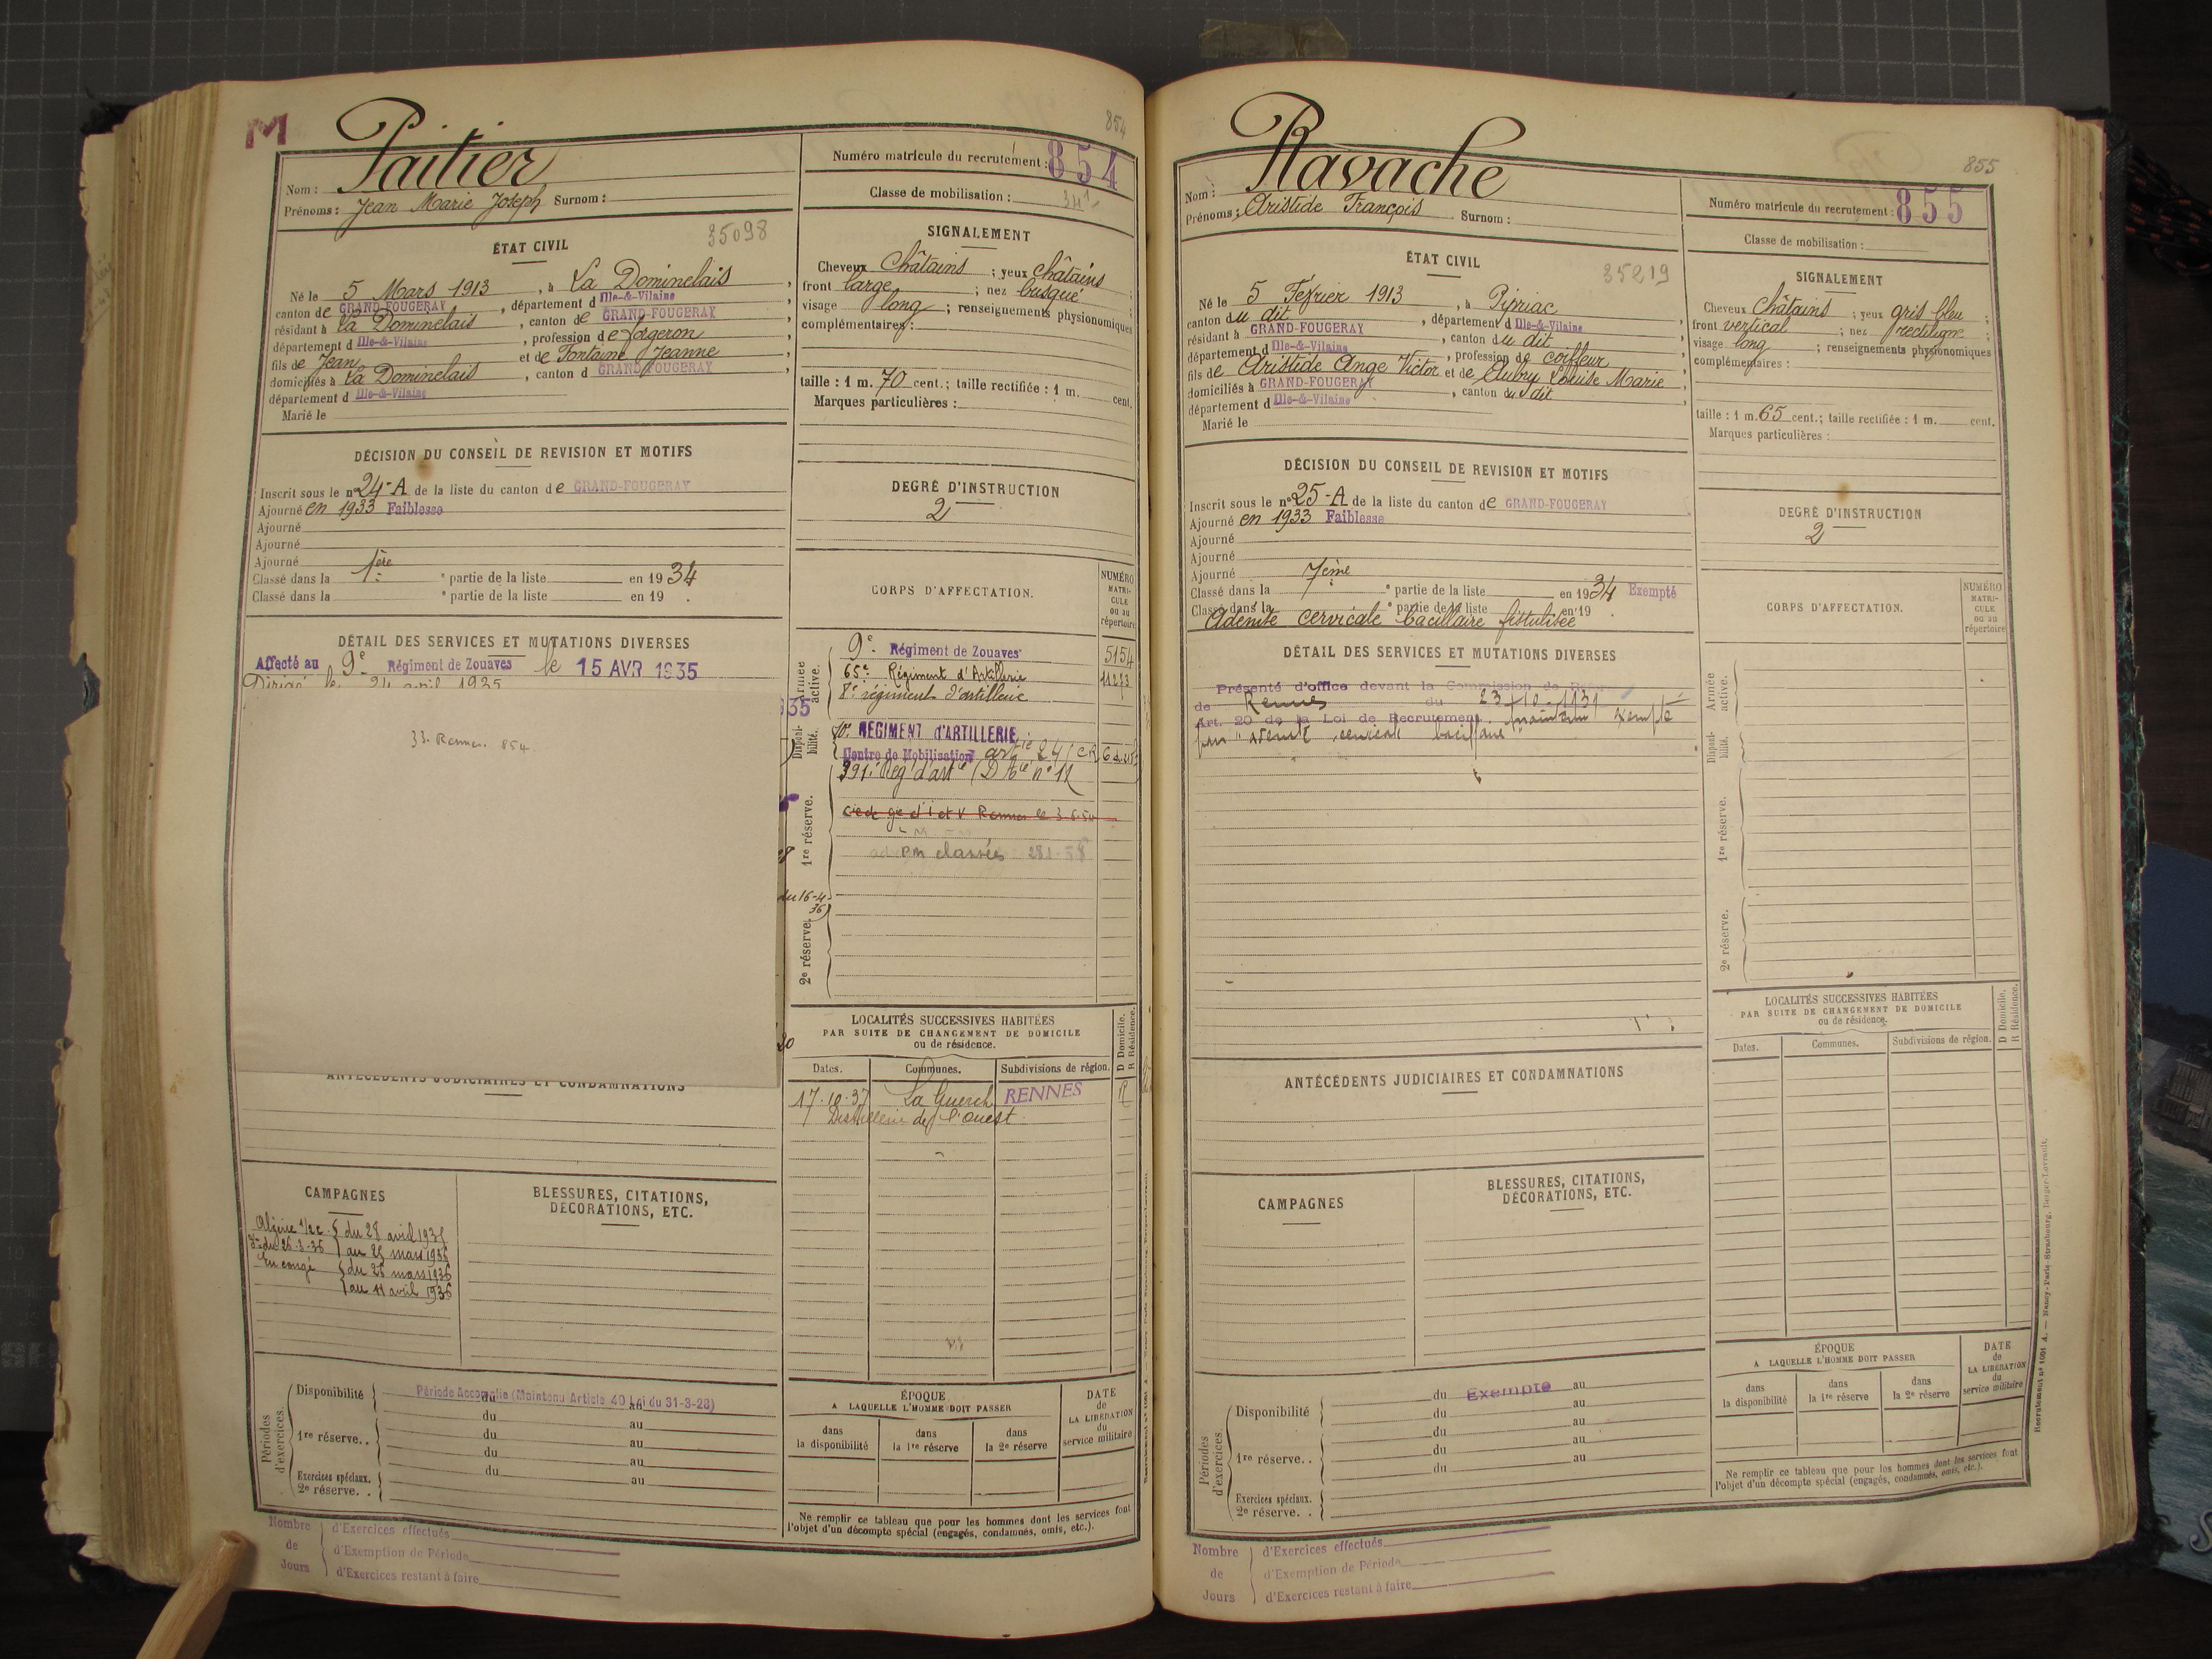 M
Paitier
854
Nom :
Prénoms : Jean Marie Joseph Surnom :
Numéro matricule du recrutement : 854
Classe de mobilisation :
ÉTAT CIVIL
35098
Né le 5 Mars 1913, à La Dominelais,
canton de GRAND-FOUGERAY, département d Ille-&-Vilaine
résidant à La Dominelais, canton de GRAND-FOUGERAY,
département d Ille-&-Vilaine, profession de forgeron
fils de Jean et de Fontaine Jeanne,
domiciliés à La Dominelais, canton d GRAND-FOUGERAY,
département d Ille-&-Vilaine
Marié le
SIGNALEMENT
Cheveux Châtains ; yeux châtains
front large ; nez busqué ;
visage long ; renseignements physionomiques
complémentaires :
taille : 1 m. 70 cent.; taille rectifiée : 1 m. cent.
Marques particulières :
DÉCISION DU CONSEIL DE REVISION ET MOTIFS
Inscrit sous le nº 24-A de la liste du canton de GRAND-FOUGERAY
Ajourné en 1933 Faiblesse
Ajourné
Ajourné
Ajourné
Classé dans la 1ère e partie de la liste en 1934
Classé dans la e partie de la liste en 19 .
DEGRÉ D'INSTRUCTION
2
DÉTAIL DES SERVICES ET MUTATIONS DIVERSES
Affecté au 9e Régiment de Zouaves le 15 AVR 1935
Dirigé le 24 avril 1935
33. Rennes. 854
CORPS D'AFFECTATION.
NUMÉRO MATRICULE ou au répertoire
Armée active.
9e Régiment de Zouaves 5154
65e Régiment d'Artillerie 11223
8e régiment d'artillerie
35
Disponibilité.
10e RÉGIMENT d'ARTILLERIE
Centre de Mobilisation artie 24 (CR
391e Reg d'artie (D Atie nº 12
1re réserve.
Cie de gie d'I et V Rennes le 3.6.50
PM classées 28.1.58
du 16-4-36)
2e réserve.
20
LOCALITÉS SUCCESSIVES HABITÉES
PAR SUITE DE CHANGEMENT DE DOMICILE
ou de résidence.
D Domicile.
R Résidence.
Dates. Communes. Subdivisions de région.
17-10-37 La Guerch RENNES R
Distillerie de l'ouest
ANTÉCÉDENTS JUDICIAIRES ET CONDAMNATIONS
CAMPAGNES
Algérie 1/2 c. du 28 avril 1935
au 25 mars 1936
En congé du 26 mars 1936
au 11 avril 1936
BLESSURES, CITATIONS,
DÉCORATIONS, ETC.
Périodes d'exercices.
Disponibilité du au
Période Accomplie (Maintenu Article 40 Loi du 31-3-28)
du au
1re réserve. . du au
du au
du au
Exercices spéciaux.
2e réserve. .
ÉPOQUE
A LAQUELLE L'HOMME DOIT PASSER
dans la disponibilité
dans la 1re réserve
dans la 2e réserve
DATE de LA LIBÉRATION du service militaire
Ne remplir ce tableau que pour les hommes dont les services font
l'objet d'un décompte spécial (engagés, condamnés, omis, etc.).
Nombre de Jours
d'Exercices effectués
d'Exemption de Période
d'Exercices restant à faire
Ravache
855
Nom :
Prénoms : Aristide François Surnom :
Numéro matricule du recrutement : 855
Classe de mobilisation :
ÉTAT CIVIL
35219
Né le 5 Février 1913, à Pipriac,
canton du dit, département d Ille-&-Vilaine
résidant à GRAND-FOUGERAY, canton du dit,
département d Ille-&-Vilaine, profession de coiffeur
fils de Aristide Ange Victor et de Aubry Louise Marie,
domiciliés à GRAND-FOUGERAY, canton du dit,
département d Ille-&-Vilaine
Marié le
SIGNALEMENT
Cheveux Châtains ; yeux gris bleu ;
front vertical ; nez rectiligne ;
visage long ; renseignements physionomiques
complémentaires :
taille : 1 m. 65 cent.; taille rectifiée : 1 m. cent.
Marques particulières :
DÉCISION DU CONSEIL DE REVISION ET MOTIFS
Inscrit sous le nº 25-A de la liste du canton de GRAND-FOUGERAY
Ajourné en 1933 Faiblesse
Ajourné
Ajourné
Ajourné
Classé dans la 7ème e partie de la liste en 1934 Exempté
Classé dans la e partie de la liste en 19 .
Adénite cervicale bacillaire fistulisée
DEGRÉ D'INSTRUCTION
2
DÉTAIL DES SERVICES ET MUTATIONS DIVERSES
Présenté d'office devant la Commission de
de Rennes du
Art. 20 de la Loi de Recrutement. maintenu exempté
pour adénite cervicale bacillaire
CORPS D'AFFECTATION.
NUMÉRO MATRICULE ou au répertoire
Armée active.
Disponibilité.
1re réserve.
2e réserve.
LOCALITÉS SUCCESSIVES HABITÉES
PAR SUITE DE CHANGEMENT DE DOMICILE
ou de résidence.
D Domicile.
R Résidence.
Dates. Communes. Subdivisions de région.
ANTÉCÉDENTS JUDICIAIRES ET CONDAMNATIONS
CAMPAGNES
BLESSURES, CITATIONS,
DÉCORATIONS, ETC.
Périodes d'exercices.
Disponibilité du Exempté au
du au
du au
1re réserve. . du au
du au
Exercices spéciaux.
2e réserve. .
ÉPOQUE
A LAQUELLE L'HOMME DOIT PASSER
dans la disponibilité
dans la 1re réserve
dans la 2e réserve
DATE de LA LIBÉRATION du service militaire
Ne remplir ce tableau que pour les hommes dont les services font
l'objet d'un décompte spécial (engagés, condamnés, omis, etc.).
Recrutement nº 1001 A. — Nancy-Paris-Strasbourg, Berger-Levrault.
Nombre de Jours
d'Exercices effectués
d'Exemption de Période
d'Exercices restant à faire